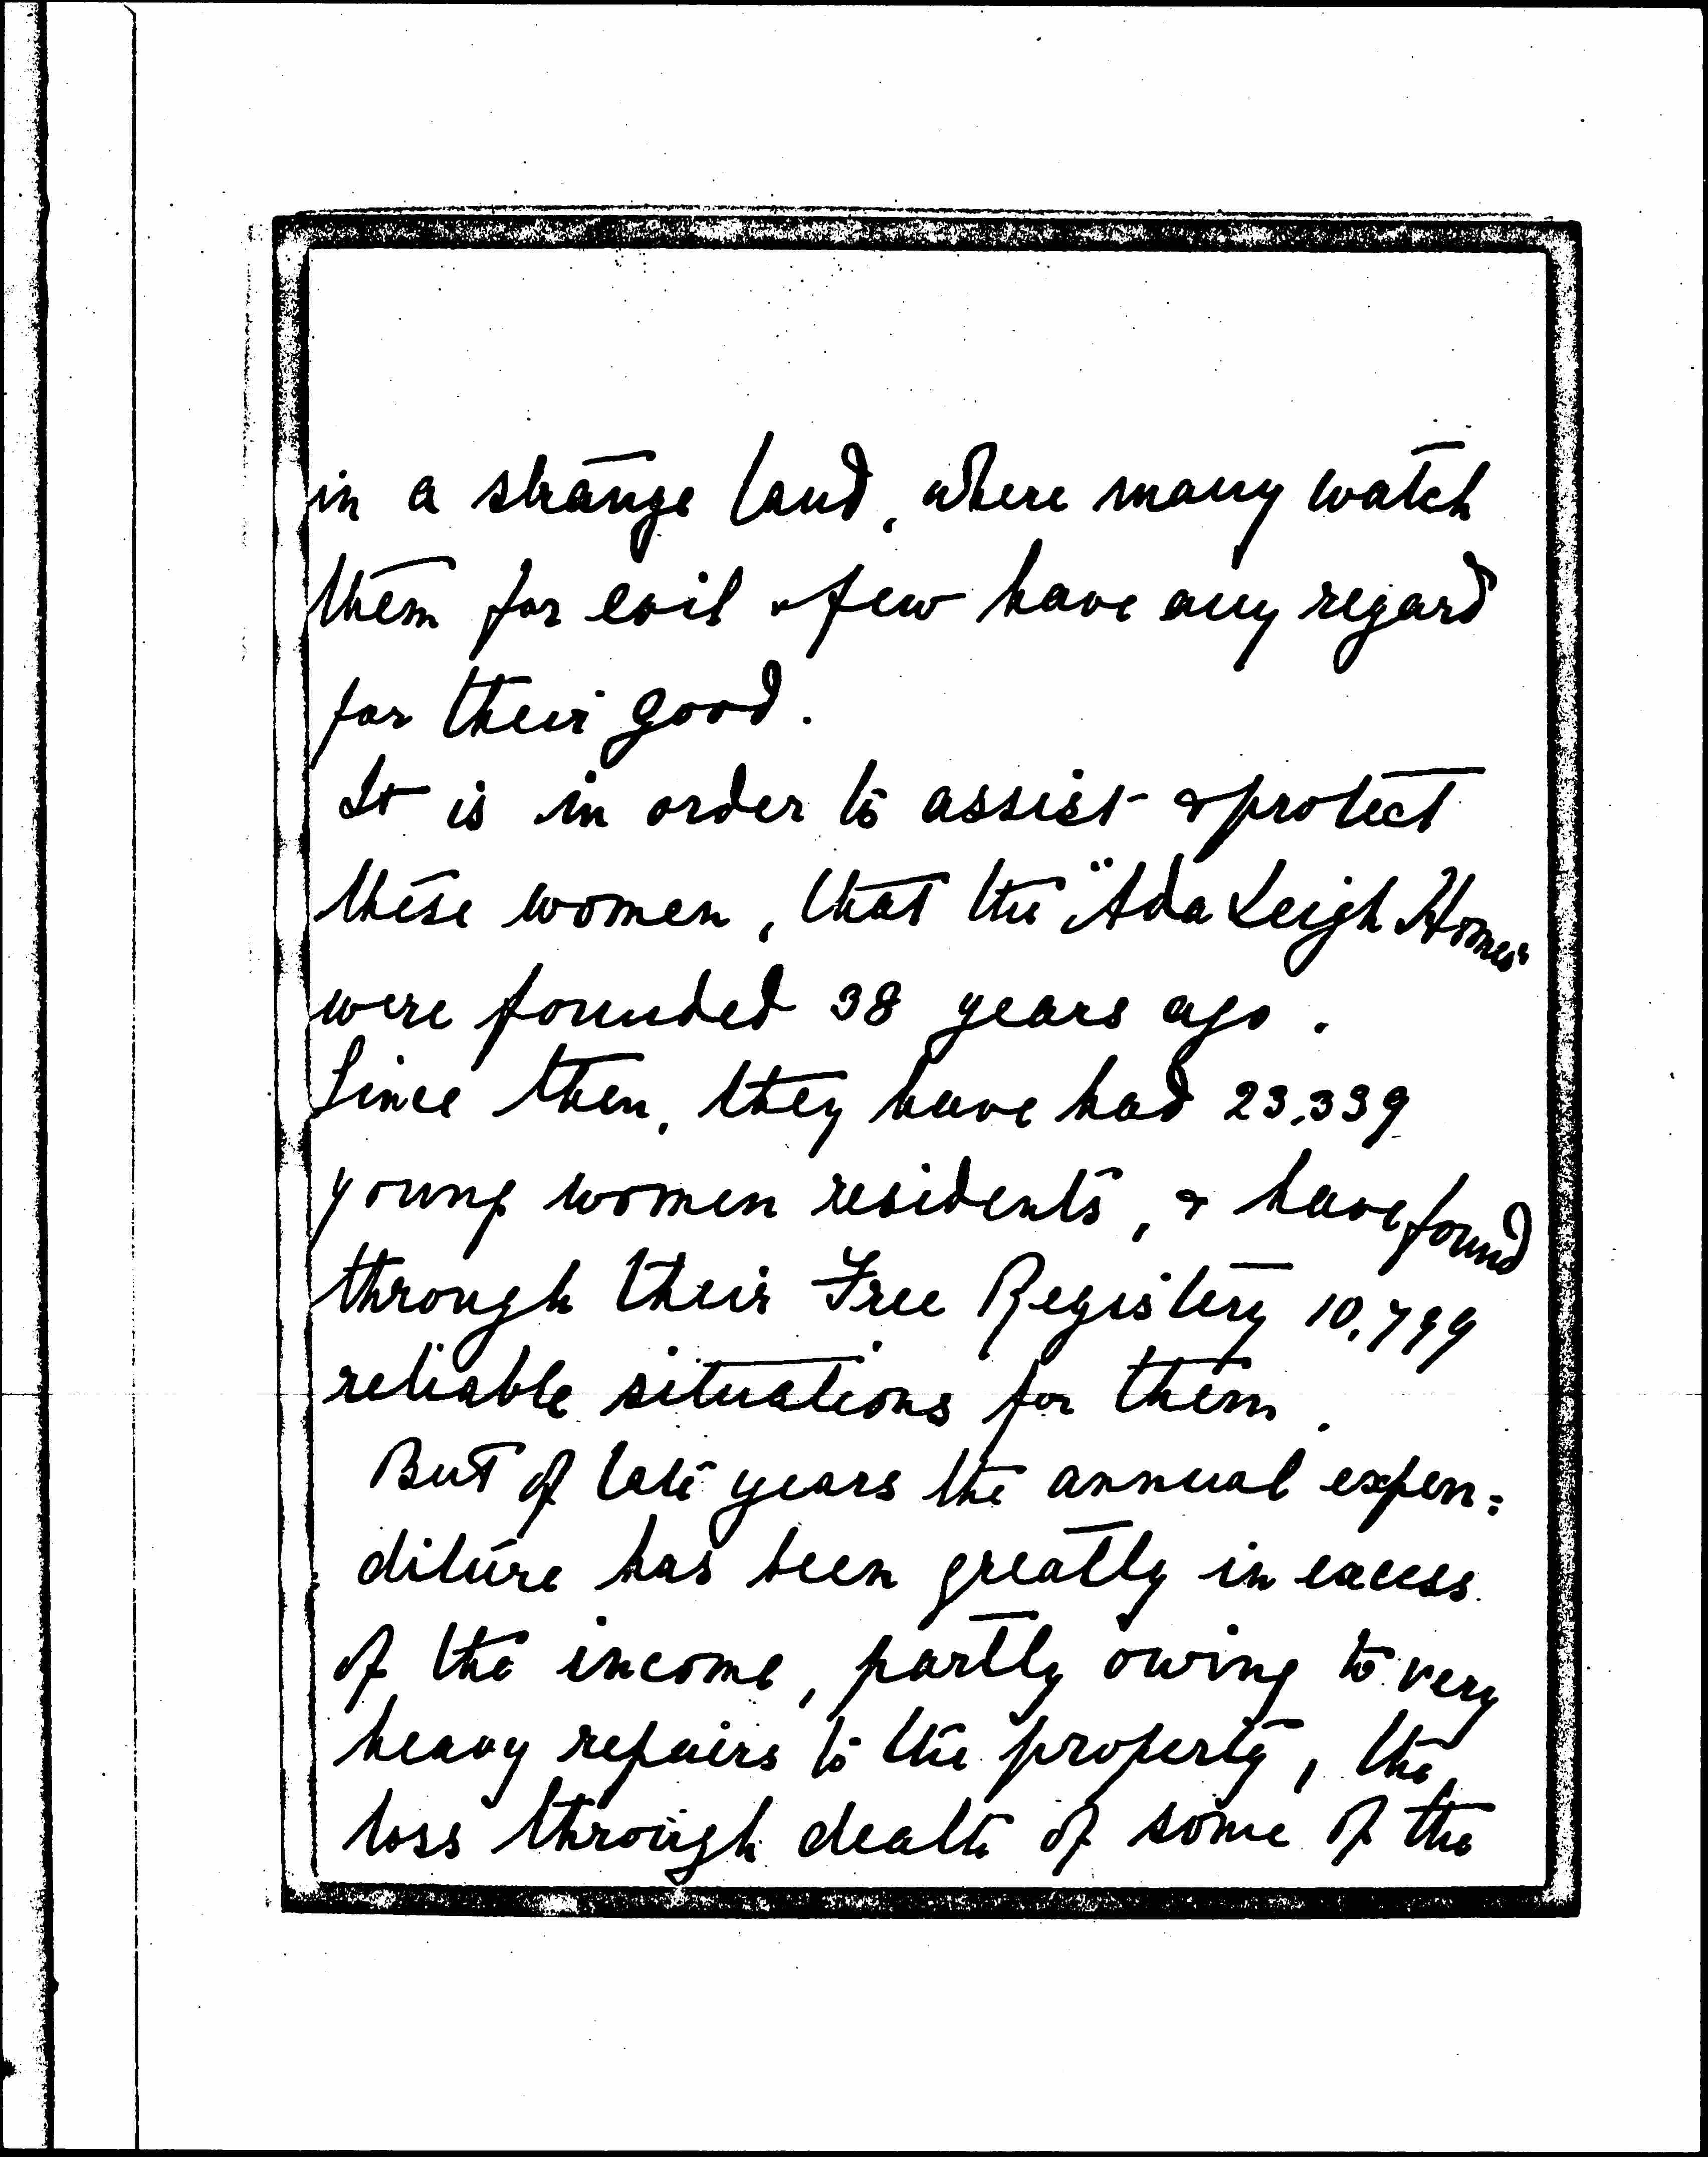 in a strange land, where many watch
them for evil & few have any regard
for their good.
It is in order to assist & protect
these women, that the "Ada Leigh Homes"
were founded 38 years ago.
Since then, they have had 23,339
young women residents, & have found
through their Free Registery 10,799
reliable situations for them.
But of late years the annual expen=
diture has been greatly in excess
of the income, partly owing to very
heavy repairs to the property, the
loss through death of some of the